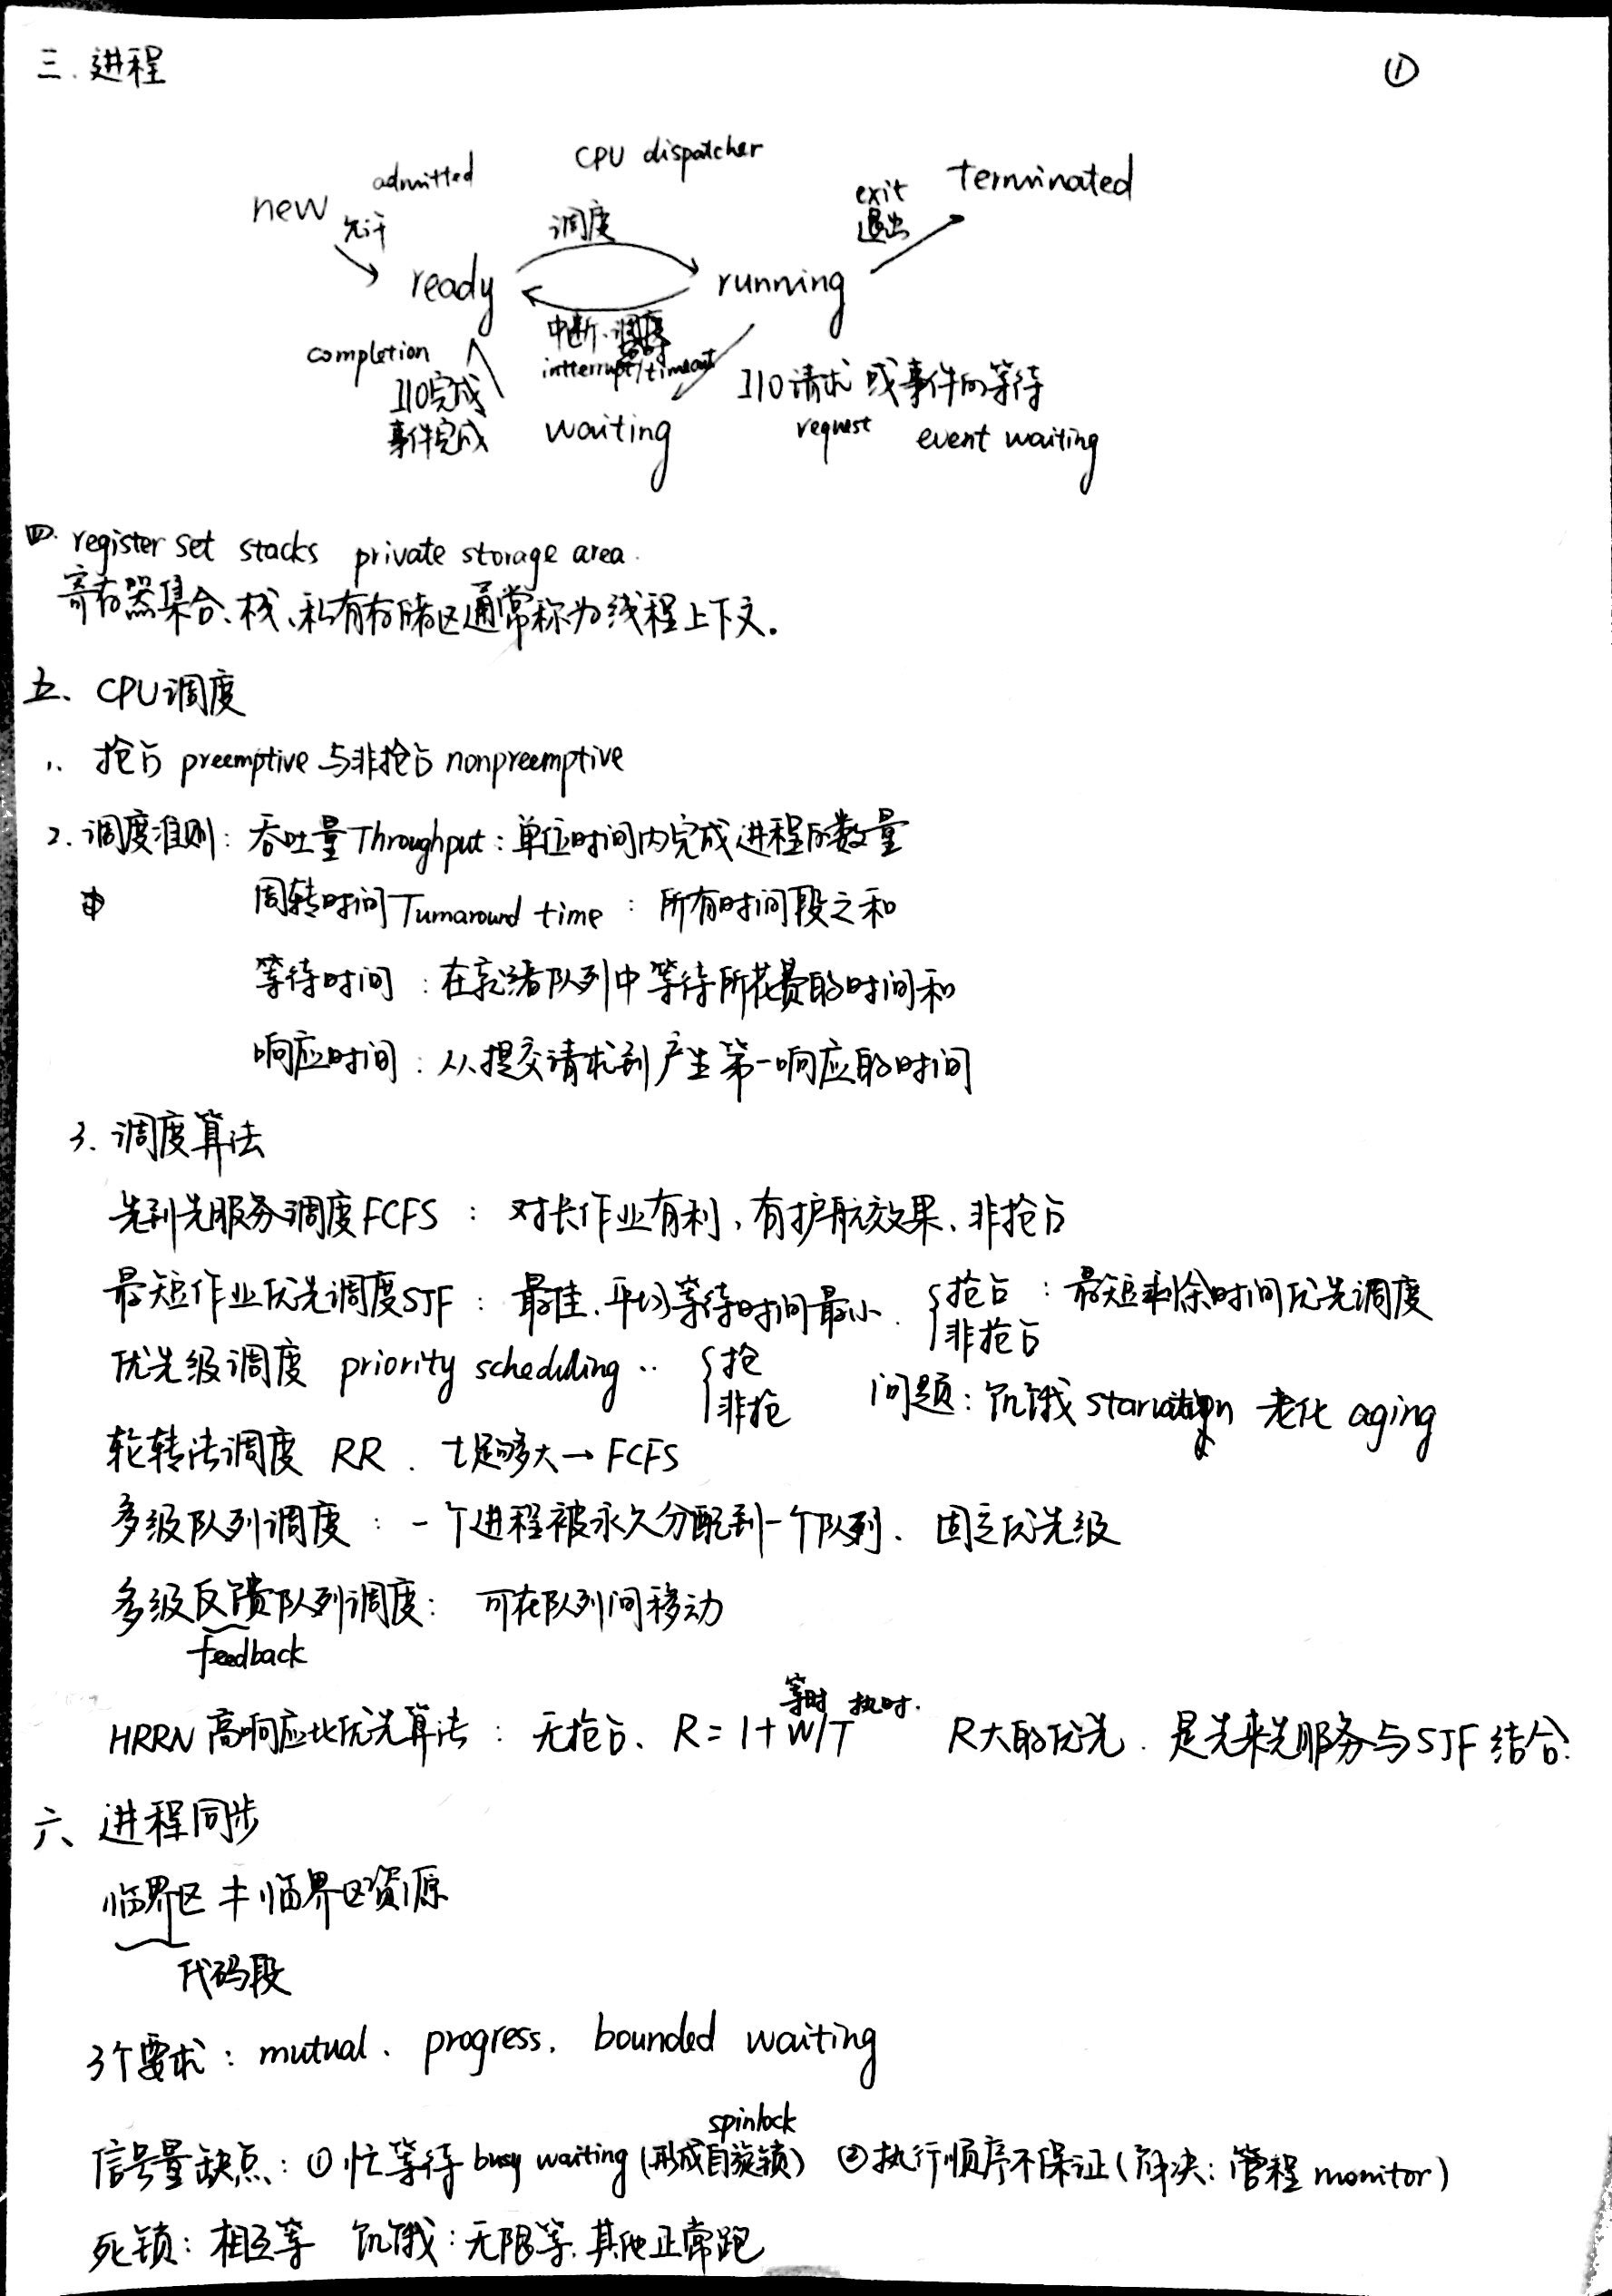 三. 进程 ①
CPU dispatcher
admitted exit terminated
new 允许 调度 退出
ready running
中断.
completion interrupt/timeout
I/O完成 I/O请求 或事件的等待
事件完成 waiting request event waiting
四. register set stacks private storage area.
寄存器集合、栈、私有存储区通常称为线程上下文。
五、 CPU调度
1. 抢占 preemptive 与非抢占 nonpreemptive
2. 调度准则: 吞吐量 Throughput: 单位时间内完成进程的数量
周转时间 Turnaround time : 所有时间段之和
等待时间 : 在就绪队列中等待所花费的时间和
响应时间 : 从提交请求到产生第一响应的时间
3. 调度算法
先到先服务调度FCFS : 对长作业有利, 有护航效果、非抢占
最短作业优先调度SJF : 最佳、平均等待时间最小. { 抢占 : 最短剩余时间优先调度
非抢占
优先级调度 priority scheduling .. { 抢
非抢 问题: 饥饿 starvation 老化 aging
轮转法调度 RR . t足够大→ FCFS
多级队列调度 : 一个进程被永久分配到一个队列、 固定优先级
多级反馈队列调度: 可在队列间移动
feedback
等时 执时.
HRRN 高响应比优先算法 : 无抢占、 R = 1 + W/T R大的优先. 是先来先服务与SJF 结合.
六、进程同步
临界区 ≠ 临界区资源
代码段
3个要求: mutual、 progress. bounded waiting
spinlock
信号量缺点: ① 忙等待 busy waiting (形成自旋锁) ②执行顺序不保证 (解决: 管程 monitor)
死锁: 相互等 饥饿: 无限等, 其他正常跑